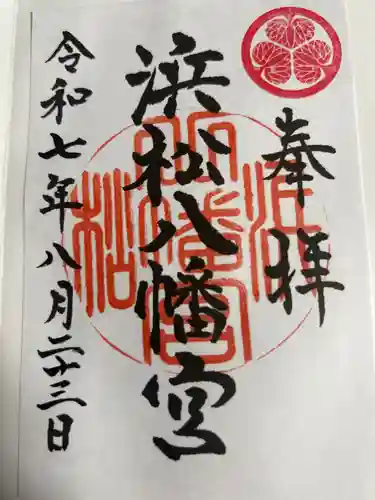 奉拝
浜松八幡宮
令和七年八月二十三日